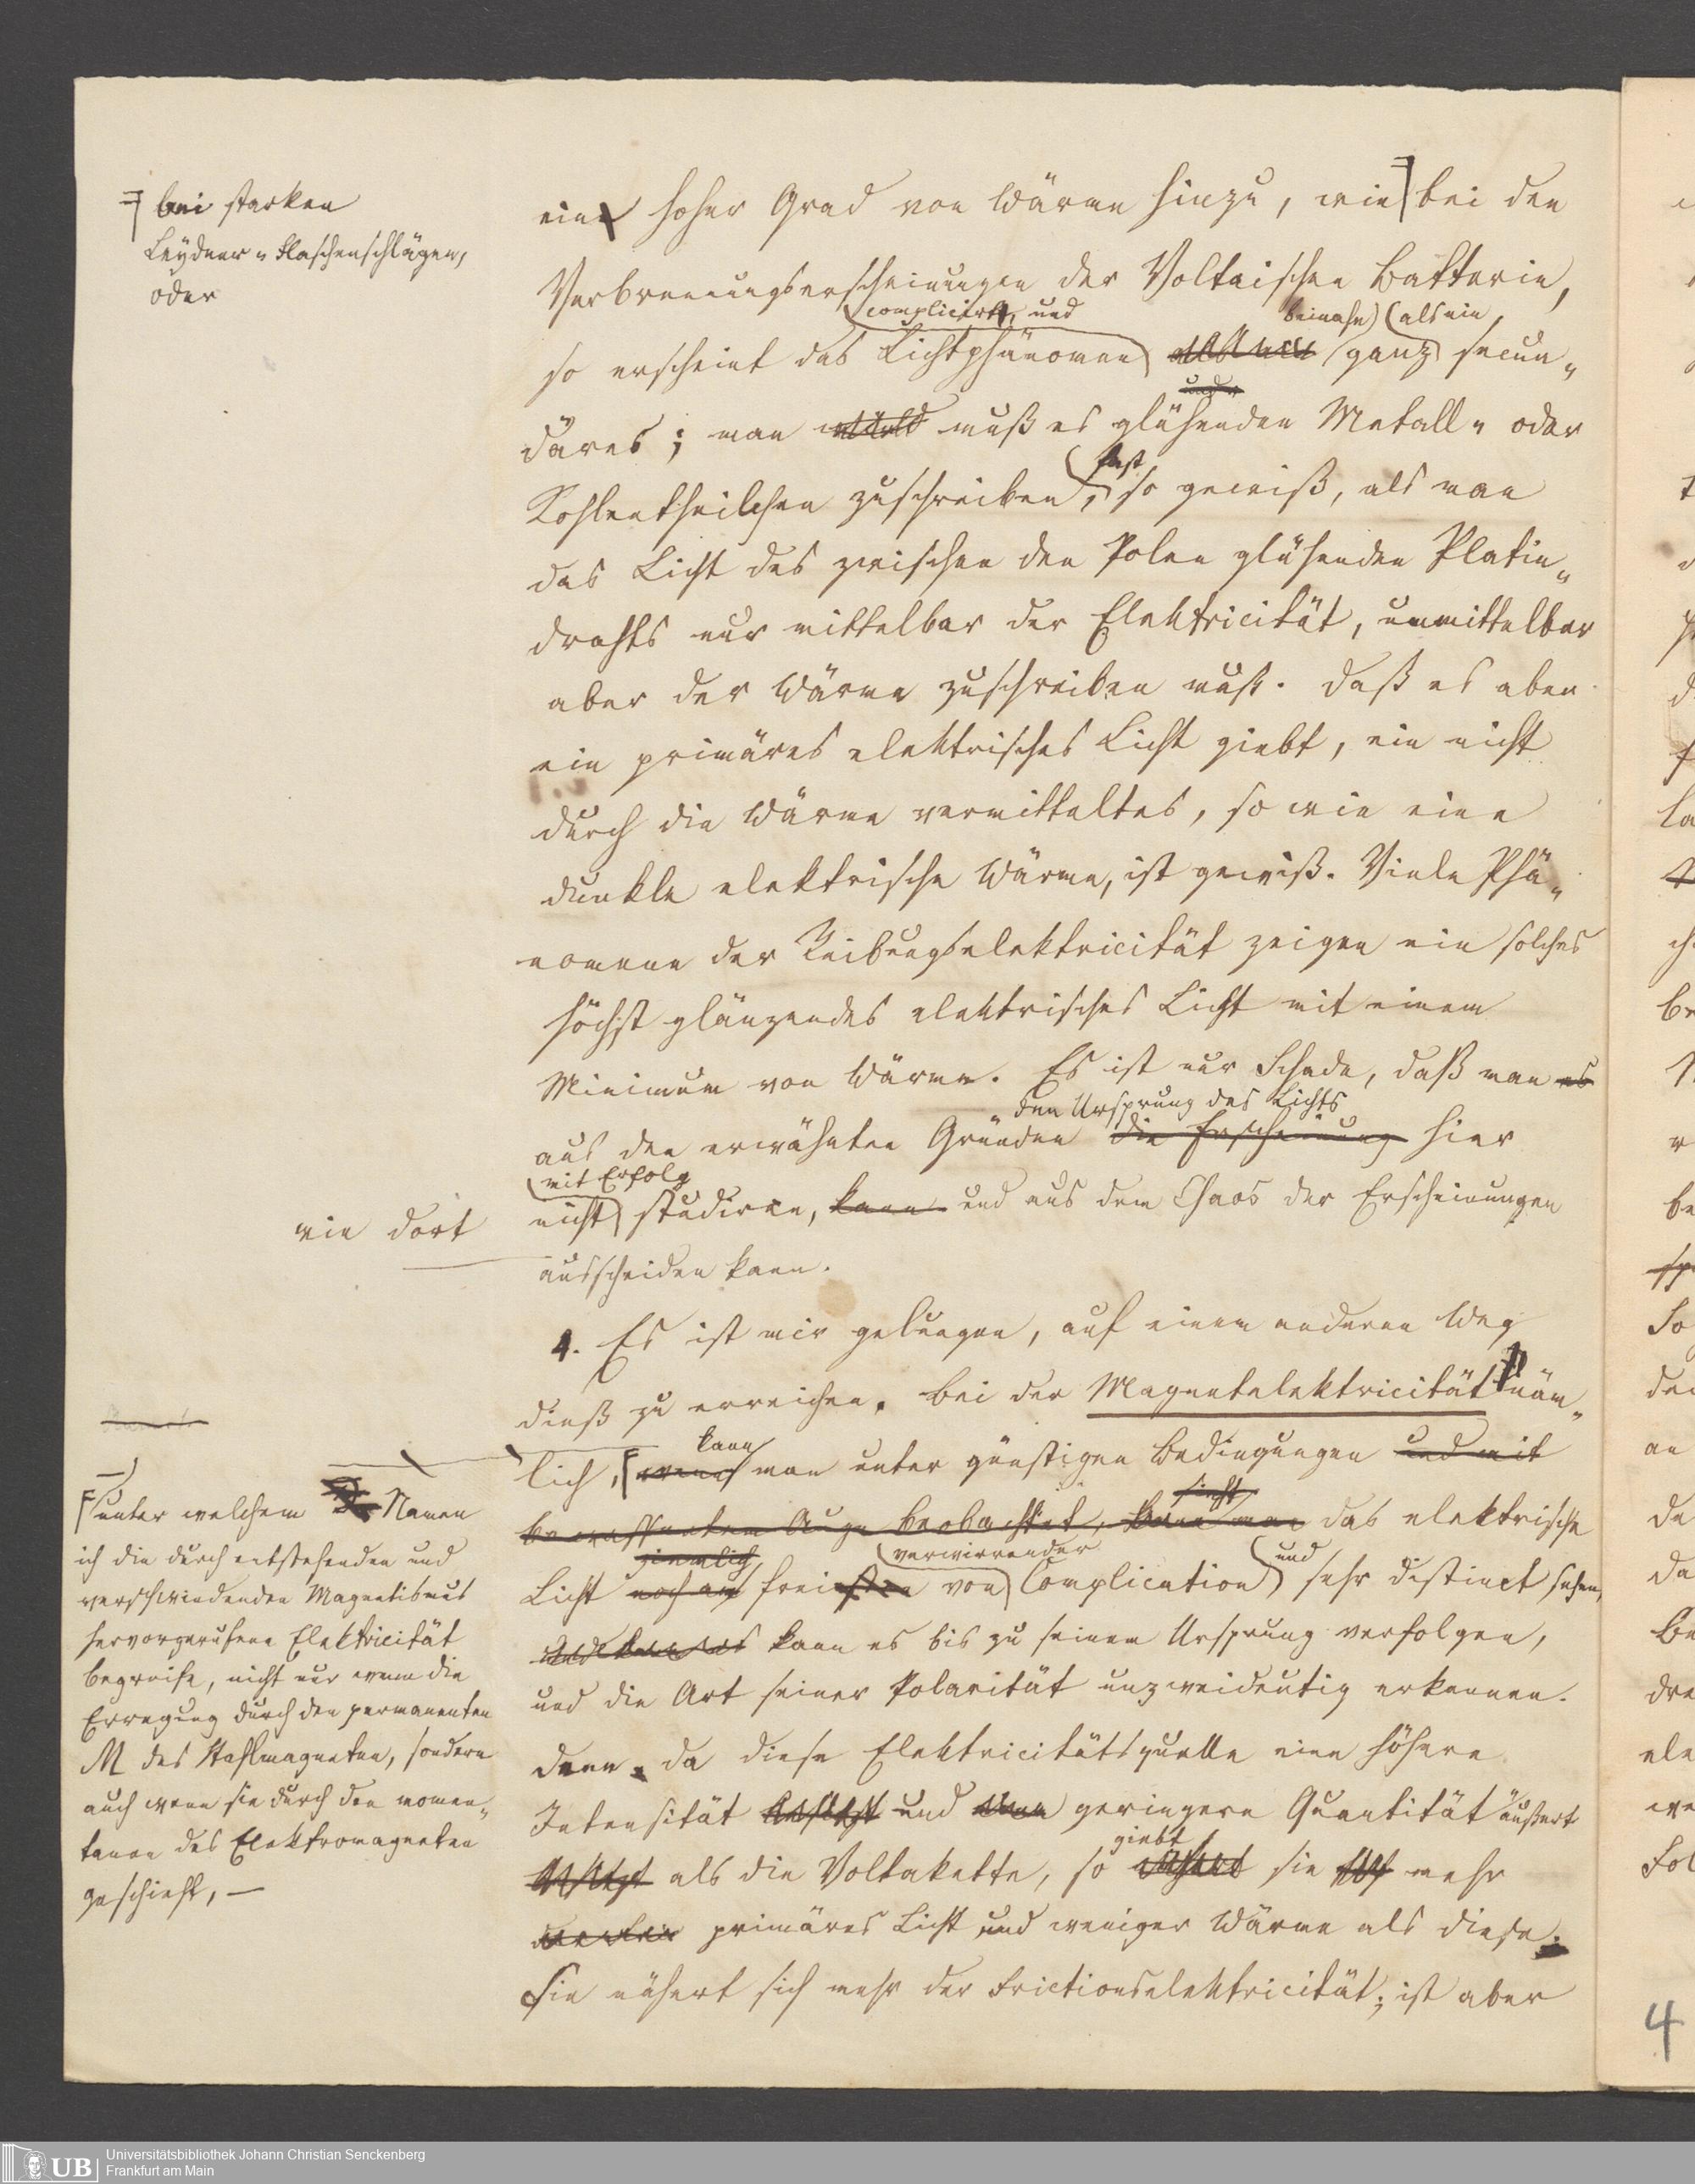 bei starken
Leydner-Flaschenschlägen,
oder
ein hoher Grad von Wärme hinzu, wie bei den
Verbrennungserscheinungen der Voltaischen Batterie,
complicirt, und beinahe als ein
so erscheint das Lichtphänomen ganz secun-
däres; man muß es glühenden Metall- oder
fast
Kohlentheilchen zuschreiben, so gewiß, als man
das Licht des zwischen den Polen glühenden Platin-
drahts nur mittelbar der Elektricität, unmittelbar
aber der Wärme zuschreiben muß. Daß es aber
ein primäres elektrisches Licht giebt, ein nicht
durch die Wärme vermitteltes, so wie eine
dunkle elektrische Wärme, ist gewiß. Viele Phä-
nomene der Reibungselektricität zeigen ein solches
höchst glänzendes elektrisches Licht mit einem
Minimum von Wärme. Es ist nur Schade, daß man es
den Ursprung des Lichts
aus den erwähnten Gründen die Erscheinung hier
mit Erfolg
nicht studiren, kann und aus dem Chaos der Erscheinungen
wie dort
ausscheiden kann.
4. Es ist mir gelungen, auf einem anderen Weg
dieß zu erreichen. Bei der Magnetelektricität näm-
kann
lich, wenn man unter günstigen Bedingungen und mit
sieht
bewaffnetem Auge beobachtet, kann man das elektrische
ziemlich verwirrender und
Licht frei von Complication sehr distinct sehen,
kann es bis zu seinem Ursprung verfolgen,
und die Art seiner Polarität unzweideutig erkennen.
denn da diese Elektricitätsquelle eine höhere
Intensität und geringere Quantität äußert
giebt
als die Voltakette, so sie mehr
primäres Licht und weniger Wärme als diese.
Sie nähert sich mehr der Frictionselektricität; ist aber
unter welchem Namen
ich die durch entstehenden und
verschwindenden Magnetismus
hervorgerufene Elektricität
begreife, nicht nur wenn die
Erregung durch den permanenten
M des Stahlmagneten, sondern
auch wenn sie durch den momen-
tanen des Elektromagneten
geschieht, —
4
UB Universitätsbibliothek Johann Christian Senckenberg
Frankfurt am Main